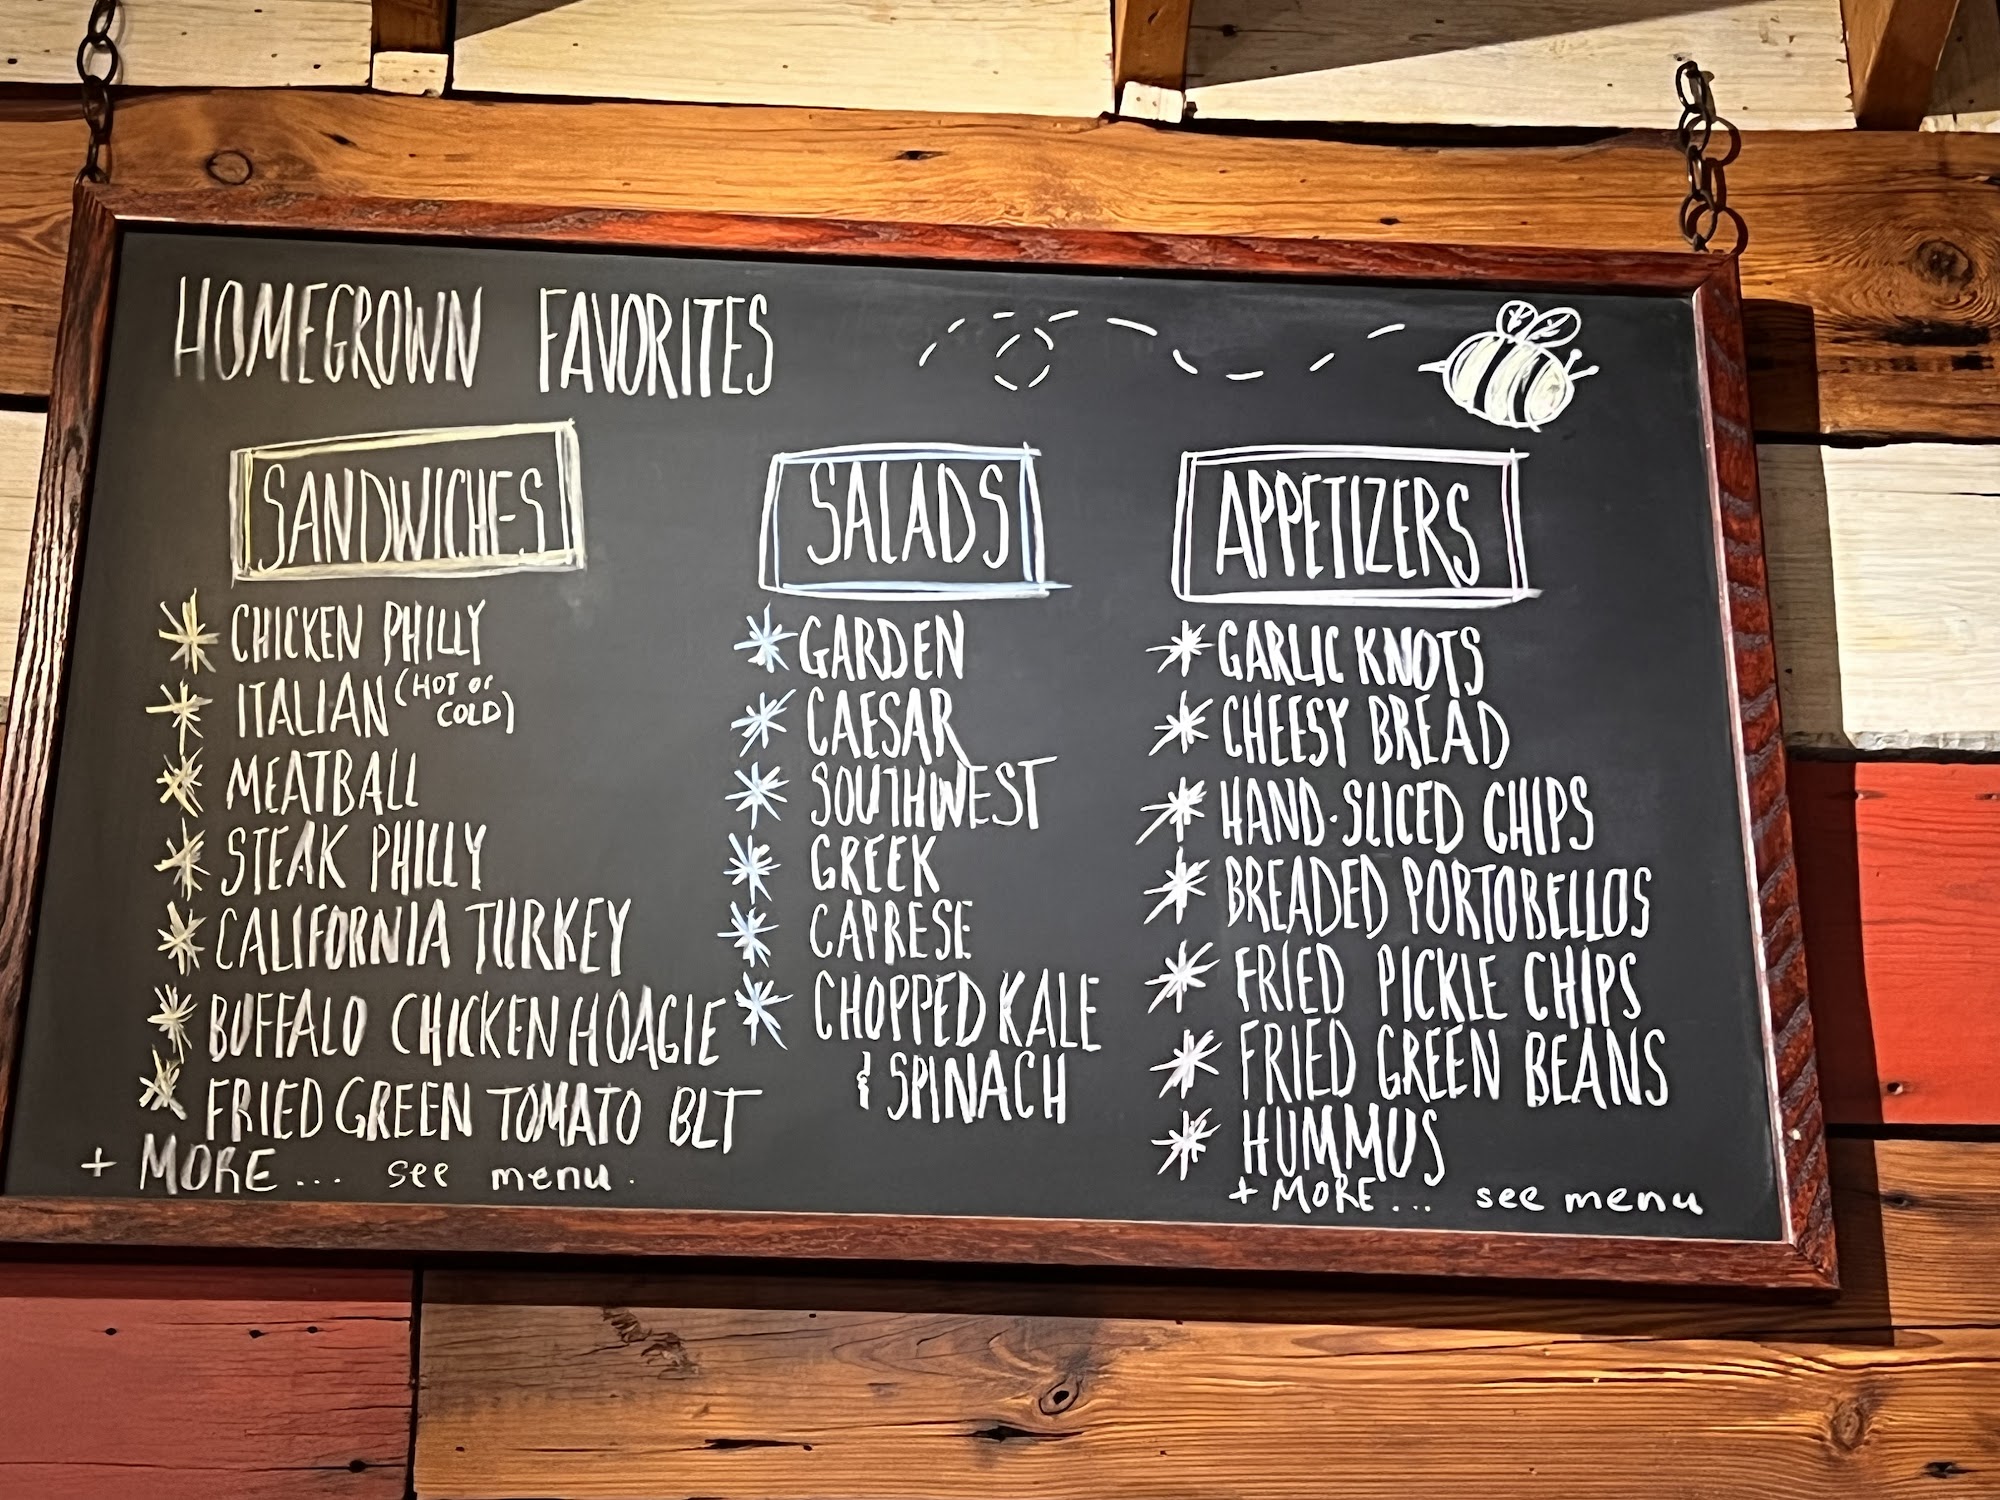 HOMEGROWN FAVORITES
SANDWICHES
CHICKEN PHILLY
ITALIAN (HOT or
COLD)
MEATBALL
STEAK PHILLY
CALIFORNIA TURKEY
BUFFALO CHICKEN HOAGIE
FRIED GREEN TOMATO BLT
+ MORE... see menu.
SALADS
GARDEN
CAESAR
SOUTHWEST
GREEK
CAPRESE
CHOPPED KALE
& SPINACH
APPETIZERS
GARLIC KNOTS
CHEESY BREAD
HAND-SLICED CHIPS
BREADED PORTOBELLOS
FRIED PICKLE CHIPS
FRIED GREEN BEANS
HUMMUS
+ MORE... see menu